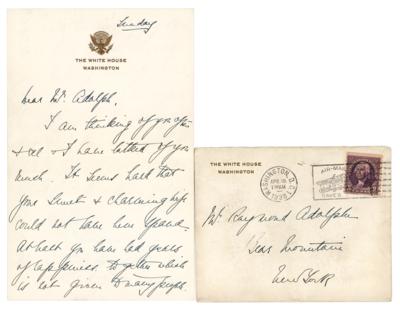 Sunday
THE WHITE HOUSE
WASHINGTON
Dear Mr. Adolph,
I am thinking of you often
& I have talked of you
much. It seems hard that
your sweet & charming wife
could not have been spared.
At least you have had years
of happiness together which
is not given to many people.
THE WHITE HOUSE
WASHINGTON
WASHINGTON, D.C.
APR
AIR-MAIL
SAVES
Mr. Raymond Adolph
Bear Mountain
New York